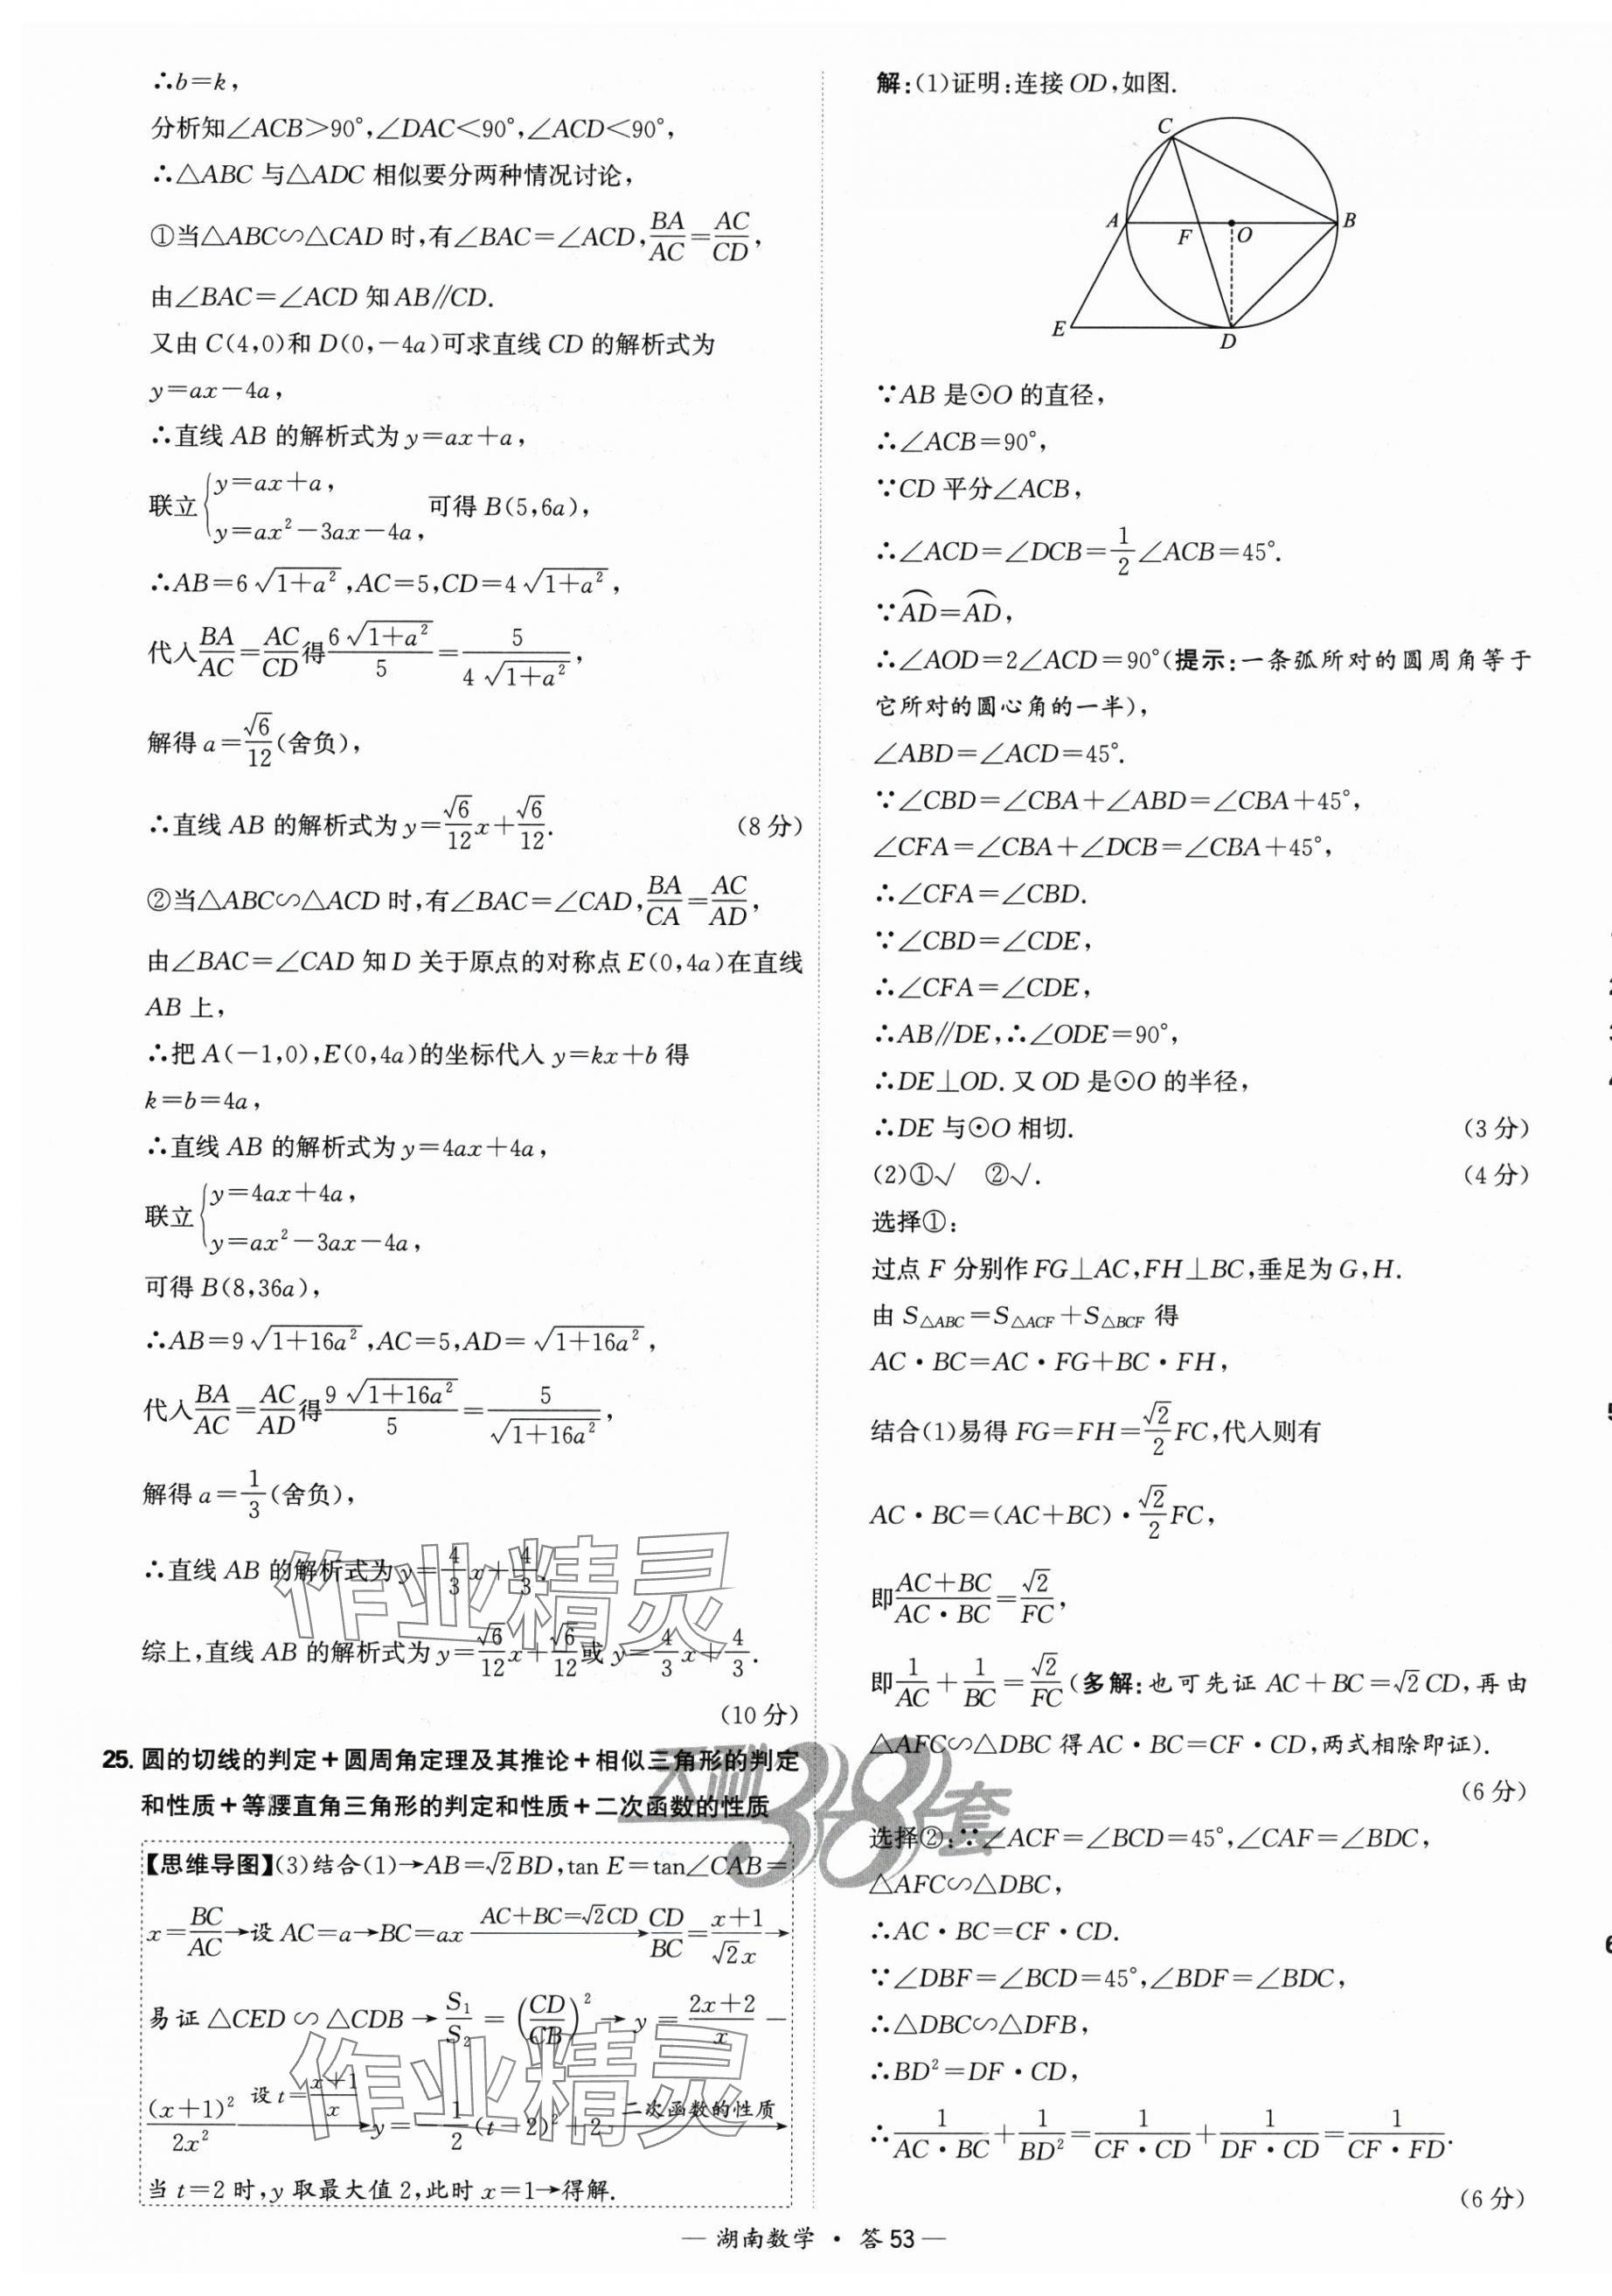 ∴b=k,
分析知∠ACB>90°,∠DAC<90°,∠ACD<90°,
∴△ABC 与△ADC 相似要分两种情况讨论,
①当△ABC∽△CAD 时,有∠BAC=∠ACD,BA/AC=AC/CD,
由∠BAC=∠ACD 知 AB∥CD.
又由 C(4,0)和 D(0,-4a)可求直线 CD 的解析式为
y=ax-4a,
∴直线 AB 的解析式为 y=ax+a,
联立{y=ax+a, y=ax²-3ax-4a, 可得 B(5,6a),
∴AB=6√(1+a²),AC=5,CD=4√(1+a²),
代入BA/AC=AC/CD得6√(1+a²)/5=5/(4√(1+a²)),
解得 a=√6/12(舍负),
∴直线 AB 的解析式为 y=√6/12x+√6/12. (8 分)
②当△ABC∽△ACD 时,有∠BAC=∠CAD,BA/CA=AC/AD,
由∠BAC=∠CAD 知 D 关于原点的对称点 E(0,4a)在直线
AB 上,
∴把 A(-1,0),E(0,4a)的坐标代入 y=kx+b 得
k=b=4a,
∴直线 AB 的解析式为 y=4ax+4a,
联立{y=4ax+4a, y=ax²-3ax-4a,
可得 B(8,36a),
∴AB=9√(1+16a²),AC=5,AD=√(1+16a²),
代入BA/AC=AC/AD得9√(1+16a²)/5=5/√(1+16a²),
解得 a=1/3(舍负),
∴直线 AB 的解析式为 y=4/3x+4/3.
综上,直线 AB 的解析式为 y=√6/12x+√6/12或 y=4/3x+4/3.
(10 分)
25. 圆的切线的判定+圆周角定理及其推论+相似三角形的判定
和性质+等腰直角三角形的判定和性质+二次函数的性质
【思维导图】(3)结合(1)→AB=√2BD,tan E=tan∠CAB=
x=BC/AC→设 AC=a→BC=ax AC+BC=√2CD→CD/BC=(x+1)/(√2x)→
易证△CED∽△CDB→S₁/S₂=(CD/CB)²→y=(2x+2)/x-
(x+1)²/(2x²) 设 t=(x+1)/x→y=-1/2(t-2)²+2 二次函数的性质→
当 t=2 时,y 取最大值 2,此时 x=1→得解.
解:(1)证明:连接 OD,如图.
C
A
F
O
B
E
D
∵AB 是⊙O 的直径,
∴∠ACB=90°,
∵CD 平分∠ACB,
∴∠ACD=∠DCB=1/2∠ACB=45°.
∵⌒AD=⌒AD,
∴∠AOD=2∠ACD=90°(提示:一条弧所对的圆周角等于
它所对的圆心角的一半),
∠ABD=∠ACD=45°.
∵∠CBD=∠CBA+∠ABD=∠CBA+45°,
∠CFA=∠CBA+∠DCB=∠CBA+45°,
∴∠CFA=∠CBD.
∵∠CBD=∠CDE,
∴∠CFA=∠CDE,
∴AB∥DE,∴∠ODE=90°,
∴DE⊥OD.又 OD 是⊙O 的半径,
∴DE 与⊙O 相切. (3 分)
(2)①√ ②√. (4 分)
选择①:
过点 F 分别作 FG⊥AC,FH⊥BC,垂足为 G,H.
由 S△ABC=S△ACF+S△BCF 得
AC·BC=AC·FG+BC·FH,
结合(1)易得 FG=FH=√2/2FC,代入则有
AC·BC=(AC+BC)·√2/2FC,
即(AC+BC)/(AC·BC)=√2/FC,
即1/AC+1/BC=√2/FC(多解:也可先证 AC+BC=√2CD,再由
△AFC∽△DBC 得 AC·BC=CF·CD,两式相除即证).
(6 分)
选择②:∵∠ACF=∠BCD=45°,∠CAF=∠BDC,
△AFC∽△DBC,
∴AC·BC=CF·CD.
∵∠DBF=∠BCD=45°,∠BDF=∠BDC,
∴△DBC∽△DFB,
∴BD²=DF·CD,
∴1/(AC·BC)+1/BD²=1/(CF·CD)+1/(DF·CD)=1/(CF·FD).
(6 分)
— 湖南数学 · 答 53 —
作业精灵
天利38套
作业精灵